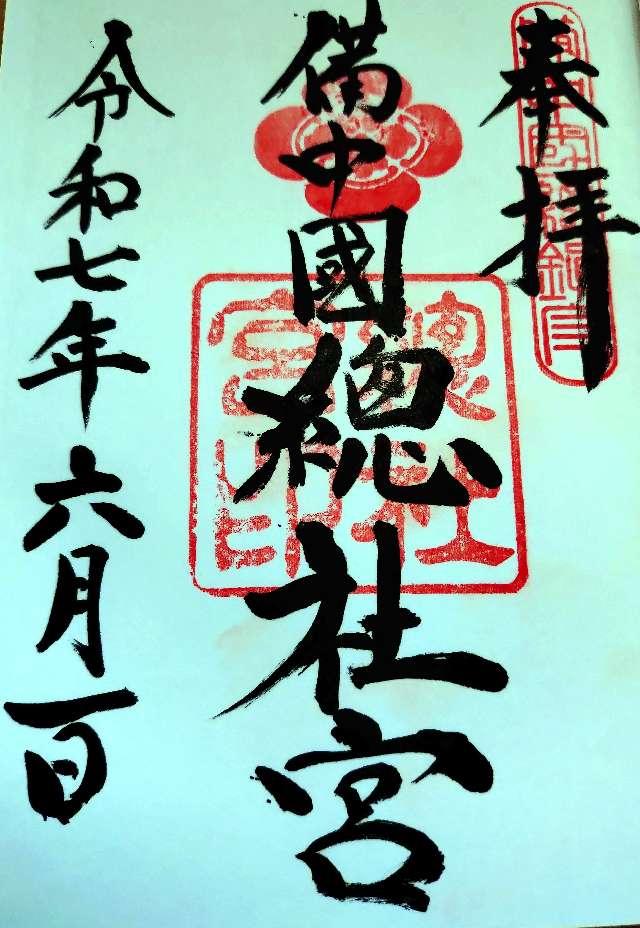 奉拝
備中國總社宮
令和七年六月一日
總社宮印